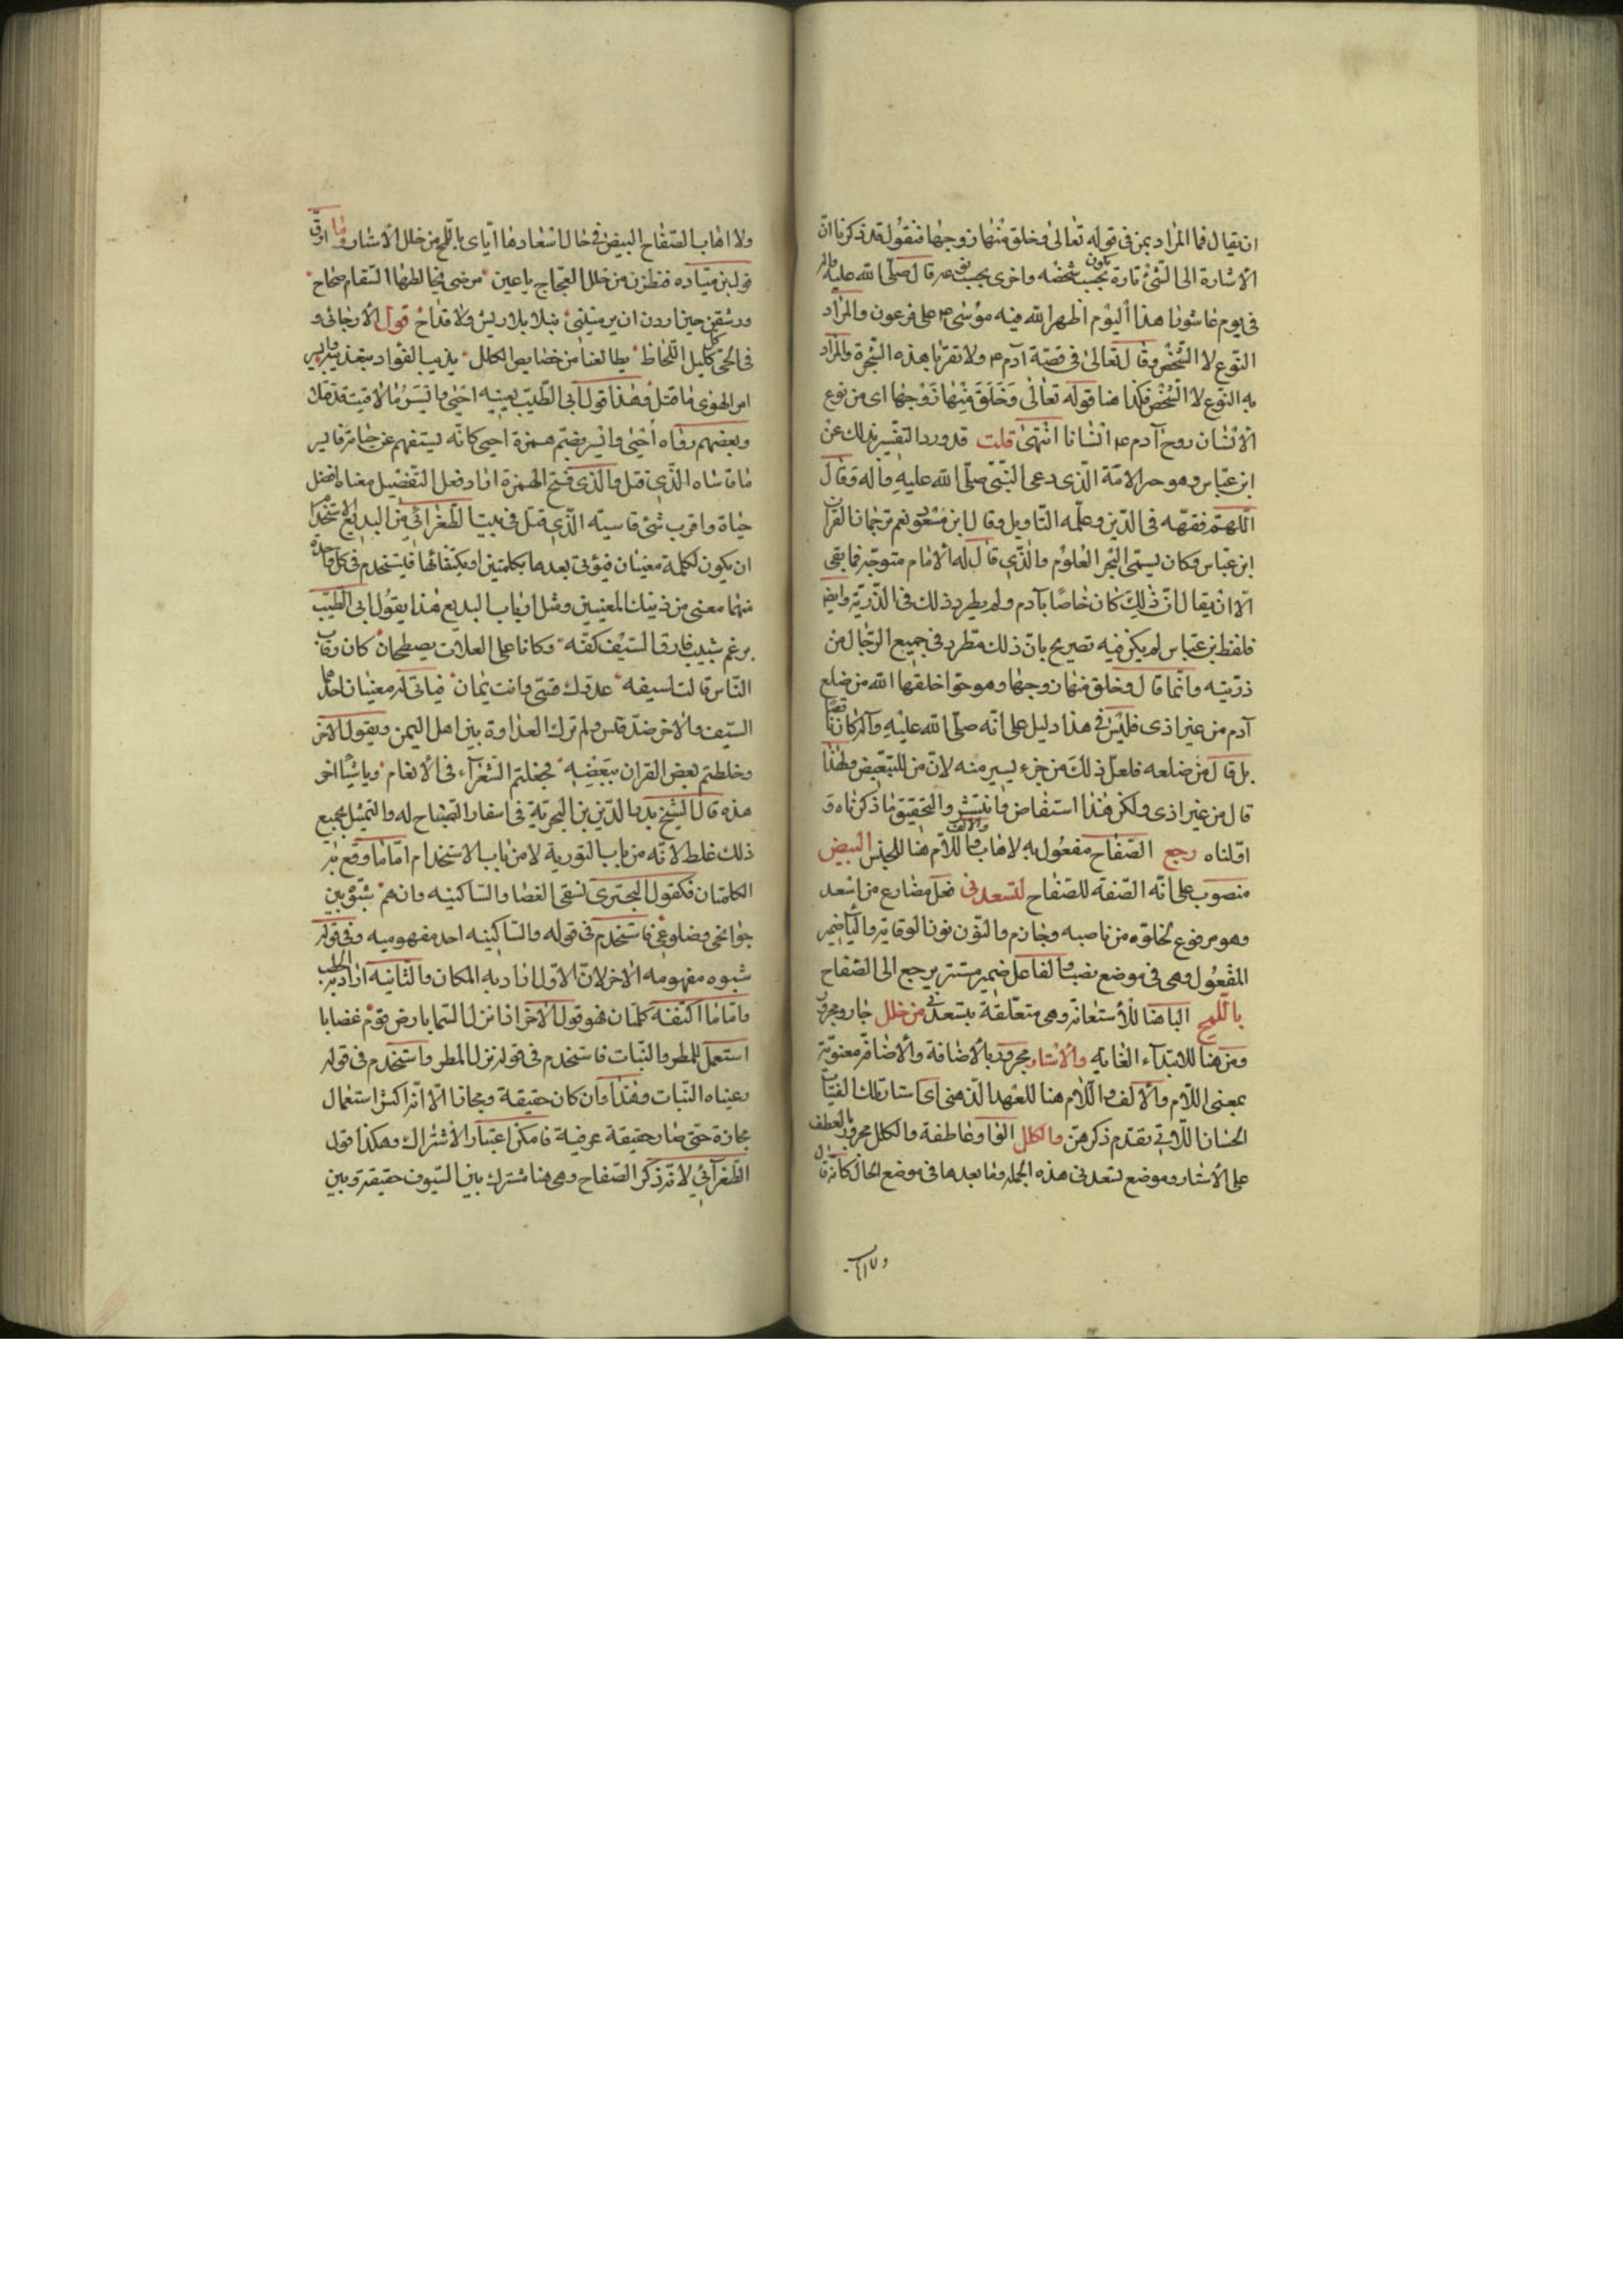 ان يقال فما المراد بمن فى قوله تعالى وخلق منها زوجها فنقول قد ذكرنا انّ
الاشارة الى الشئ تارة يكون بحسب شخصه واخرى بحسب نوعه قال صلّى الله عليه واله
فى يوم عاشورا هذا اليوم اظهر الله فيه موسى م على فرعون والمراد
النوع لا الشخص وقال تعالى فى قصة آدم م ولا تقربا هذه الشجرة والمراد
به النوع لا الشخص فكذا هنا قوله تعالى وَخَلَقَ مِنْها زَوْجَها اى من نوع
الانسان زوج آدم ع م انسانا انتهى قلت قد ورد التفسير بذلك عن
ابن عبّاس وهو حبر الامّة الّذى دعى النّبىّ صلّى الله عليه واله وقال
اللّهمّ فقهه فى الدّين وعلّمه التاويل وقال ابن مسعود نعم ترجمان القرآن
ابن عبّاس وكان يسمّى البحر العلوم والّذى قال له الامام متوجّه فما بقى
الّا ان يقال انّ ذلك كان خاصّا بآدم ولم يطرد ذلك فى الذّريّة وايضا
فلفظ بن عبّاس لم يكن فيه تصريح بانّ ذلك مطّرد فى جميع الرّجال من
ذرّيته وانّما قال وخلق منها زوجها وهو حوّا خلقها الله من ضلع
آدم من غير اذى فليس فى هذا دليل على انّه صلّى الله عليه وآله كان ناقصا
بل قال من ضلعه فلعلّ ذلك من جزء يسير منه لانّ من للتبعيض ولهذا
قال من غير اذى ولكن هذا استفاض وانتشر والتحقيق ما ذكرناه و
اوّلناه رجع الصّفاح مفعول به لاهاب والالف واللّام هنا للجنس البيض
منصوب على انّه الصّفة للصّفاح لتسعدنى فعل مضارع من اسعد
وهو مرفوع لخلوّه من ناصبه وجازم والنّون نون الوقاية والياء ضمير
المفعول وهى فى موضع نصب والفاعل ضمير مستتر يرجع الى الصّفاح
باللّمح البا هنا للاستعانة وهى متعلّقة بتسعدنى من خلل جار ومجرور
ومن هنا للابتداء الغاية والاستار مجرور بالاضافة والاضافة معنويّة
بمعنى اللّام والالف واللّام هنا للعهد الذّهنى اى استار تلك الفتيات
الحسان اللّاتى تقدّم ذكرهنّ والكلل الواو عاطفة والكلل مجرور بالعطف
على الاستار وموضع تسعدنى هذه الجملة وما بعدها فى موضع الحال كانّه قال
ولا اهاب
ولا اهاب الصّفاح البيض فى حال اسعادها ايّاى باللّمح من خلل الاستار وما ارقّ
قول بن ميّاده فنظرن من خلل الحجاج باعين مرضى يخالطها السّقام صحاح
ورشقن حين اردن ان يرمينى نبلا بلا ريش ولا قداح قول الارجانى و
فى الحىّ كلّ كليل اللّحاظ يطالعنا من خصايص الكلل يذيب الفؤاد بتعذيبه
امر الهوى ما قتل وهذا قول ابى الطّيّب بعينه احيى وايسر ما لاقيت قد قتلا
وبعضهم رواه أحيى وايسر بضم همزة احيى كانّه يستفهم عن حياته فايسر
ما قاساه الّذى قتل والّذى فتح الهمزة اراد فعل التّفضيل معناه افضل
حياة واقرب شئ قاسيته الّذى قتل فى بيت الطّغرائى من البديع الاستخدام
ان يكون لكلمة معنيان فيؤتى بعدها بكلمتين او يكتنفانها فيستخدم فى كلّ واحدة
منهما معنى من ذينك المعنيين ومثل ارباب البديع هذا بقول ابى الطّيّب
برغم شبيب فارق السّيف كفّه وكانا على العلّات يصطحبان كان رقاب
النّاس قالت لسيفه عدوّك قيسى وانت يمان فياتى له معنيان احدهما
السّيف والاخر ضدّ قيس ولم تزل العداوة بين اهل اليمن وبقول الاخر
وخلطتم بعض القرآن ببعضه فجعلتم الشّعراء فى الانعام وباشياء اخر
هذه قال الشّيخ بدر الدّين بن النحويّة فى اسفار الصّباح له والتمثيل بجميع
ذلك غلط لانّه من باب التورية لا من باب الاستخدام امّا ما وقع بعد
الكلمتان فكقول البحترى فسقى الغضا والسّاكنيه وان هم شبّوه بين
جوانحى وضلوعى فاستخدم فى قوله والسّاكنيه احد مفهوميه وفى قوله
شبوه مفهومه الاخر لانّ الاوّل اراد به المكان والثّانيه اراد به الحطب
وامّا ما اكتنفه كلمتان فهو قول الاخر اذا نزل السّما بارض قوم غضابا
استعمل للمطر والنّبات فاستخدم فى قوله نزل المطر واستخدم فى قوله
رعيناه النّبات وهذا وان كان حقيقة ومجازا الّا انّه اكثر استعمال
مجازه حتّى صار حقيقة عرفية فامكن اعتبار الاشتراك وهكذا قول
الطّغرآئى لانّه ذكر الصّفاح وهى هنا مشترك بين السّيوف حقيقة وبين